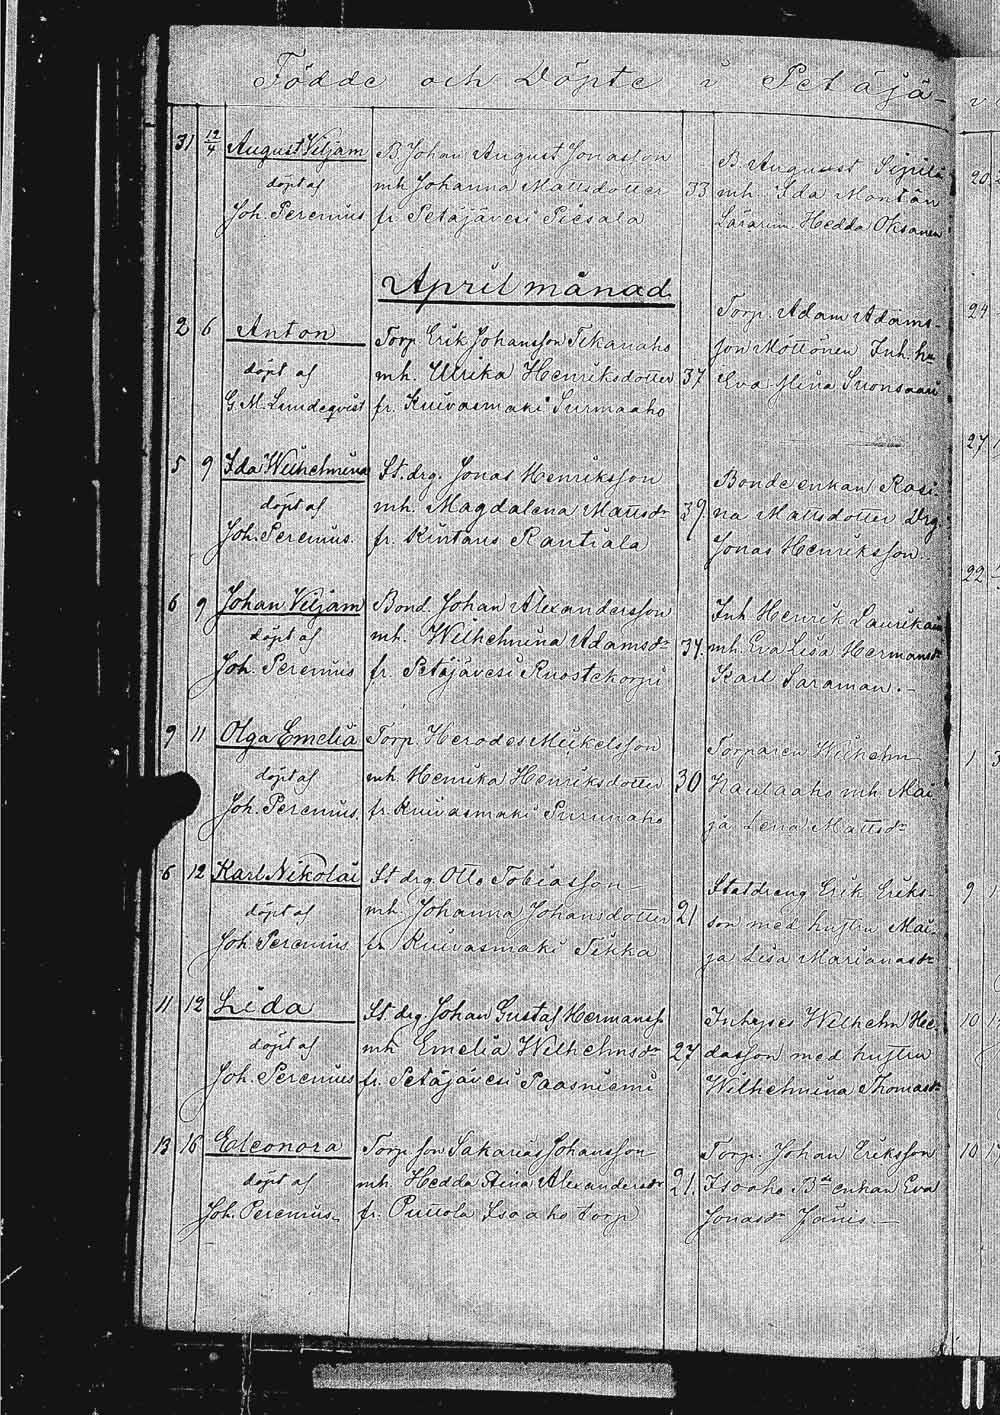 Födde och Döpte i Petäjä-
31 12/4 August Viljam B. Johan August Jonasson B. August Sipilä
döpt af mh Johanna Mattsdotter 33 mh Ida Montén
Joh. Perenius fr Petäjävesi Piesala Lärarinn. Hedda Oksanen
April månad.
2 6 Anton Torp. Erik Johansson Tikanaho Torp. Adam Adams-
döpt af mh. Ulrika Henriksdotter 37 son Möttönen Inh. hu
G. M. Lundeqvist fr. Kuivasmäki Surmaaho Eva Stina Suonsaari
5 9 Ida Wilhelmina St. drg. Jonas Henriksson Bonde enkan Rosi-
döpt af mh. Magdalena Mattsdr 39. na Mattsdotter Drg
Joh. Perenius. fr. Kintaus Rantiala Jonas Henriksson.
6 9 Johan Viljam Bond. Johan Alexandersson Inh Henrik Laurikain
döpt af mh. Wilhelmina Adamsdr 34. mh. Eva Lisa Hermansdr
Joh. Perenius fr. Petäjävesi Ruostekorpi Karl Saraman.-
9 11 Olga Emelia Torp. Herodes Mikelsson Torparen Wilhelm
döpt af mh Henrika Henriksdotter 30 Kaulaaho mh Mai
Joh. Perenius. fr. Kuivasmäki Surmaho ja Lena Mattsdr
6 12 Karl Nikolai St drg. Otto Tobiasson Statdreng Erik Eriks-
döpt af mh. Johanna Johansdotter 21 son med hustru Mai-
Joh. Perenius fr Kuivasmäki Tikka ja Lisa Mariansdr
11 12 Lida St. drg. Johan Gustaf Hermanss. Inhyses Wilhelm He-
döpt af mh Emelia Wilhelmsdr 27 dasson med hustru
Joh. Perenius fr. Petäjävesi Paasniemi Wilhelmina Thomasdr
13 16 Eleonora Torp. son Sakarias Johansson Torp. Johan Eriksson
döpt af mh. Hedda Stina Alexandersdr 21. Isoaho Bde enkan Eva
Joh. Perenius. fr. Puttola Isoaho torp Jonasdr Jänis.-